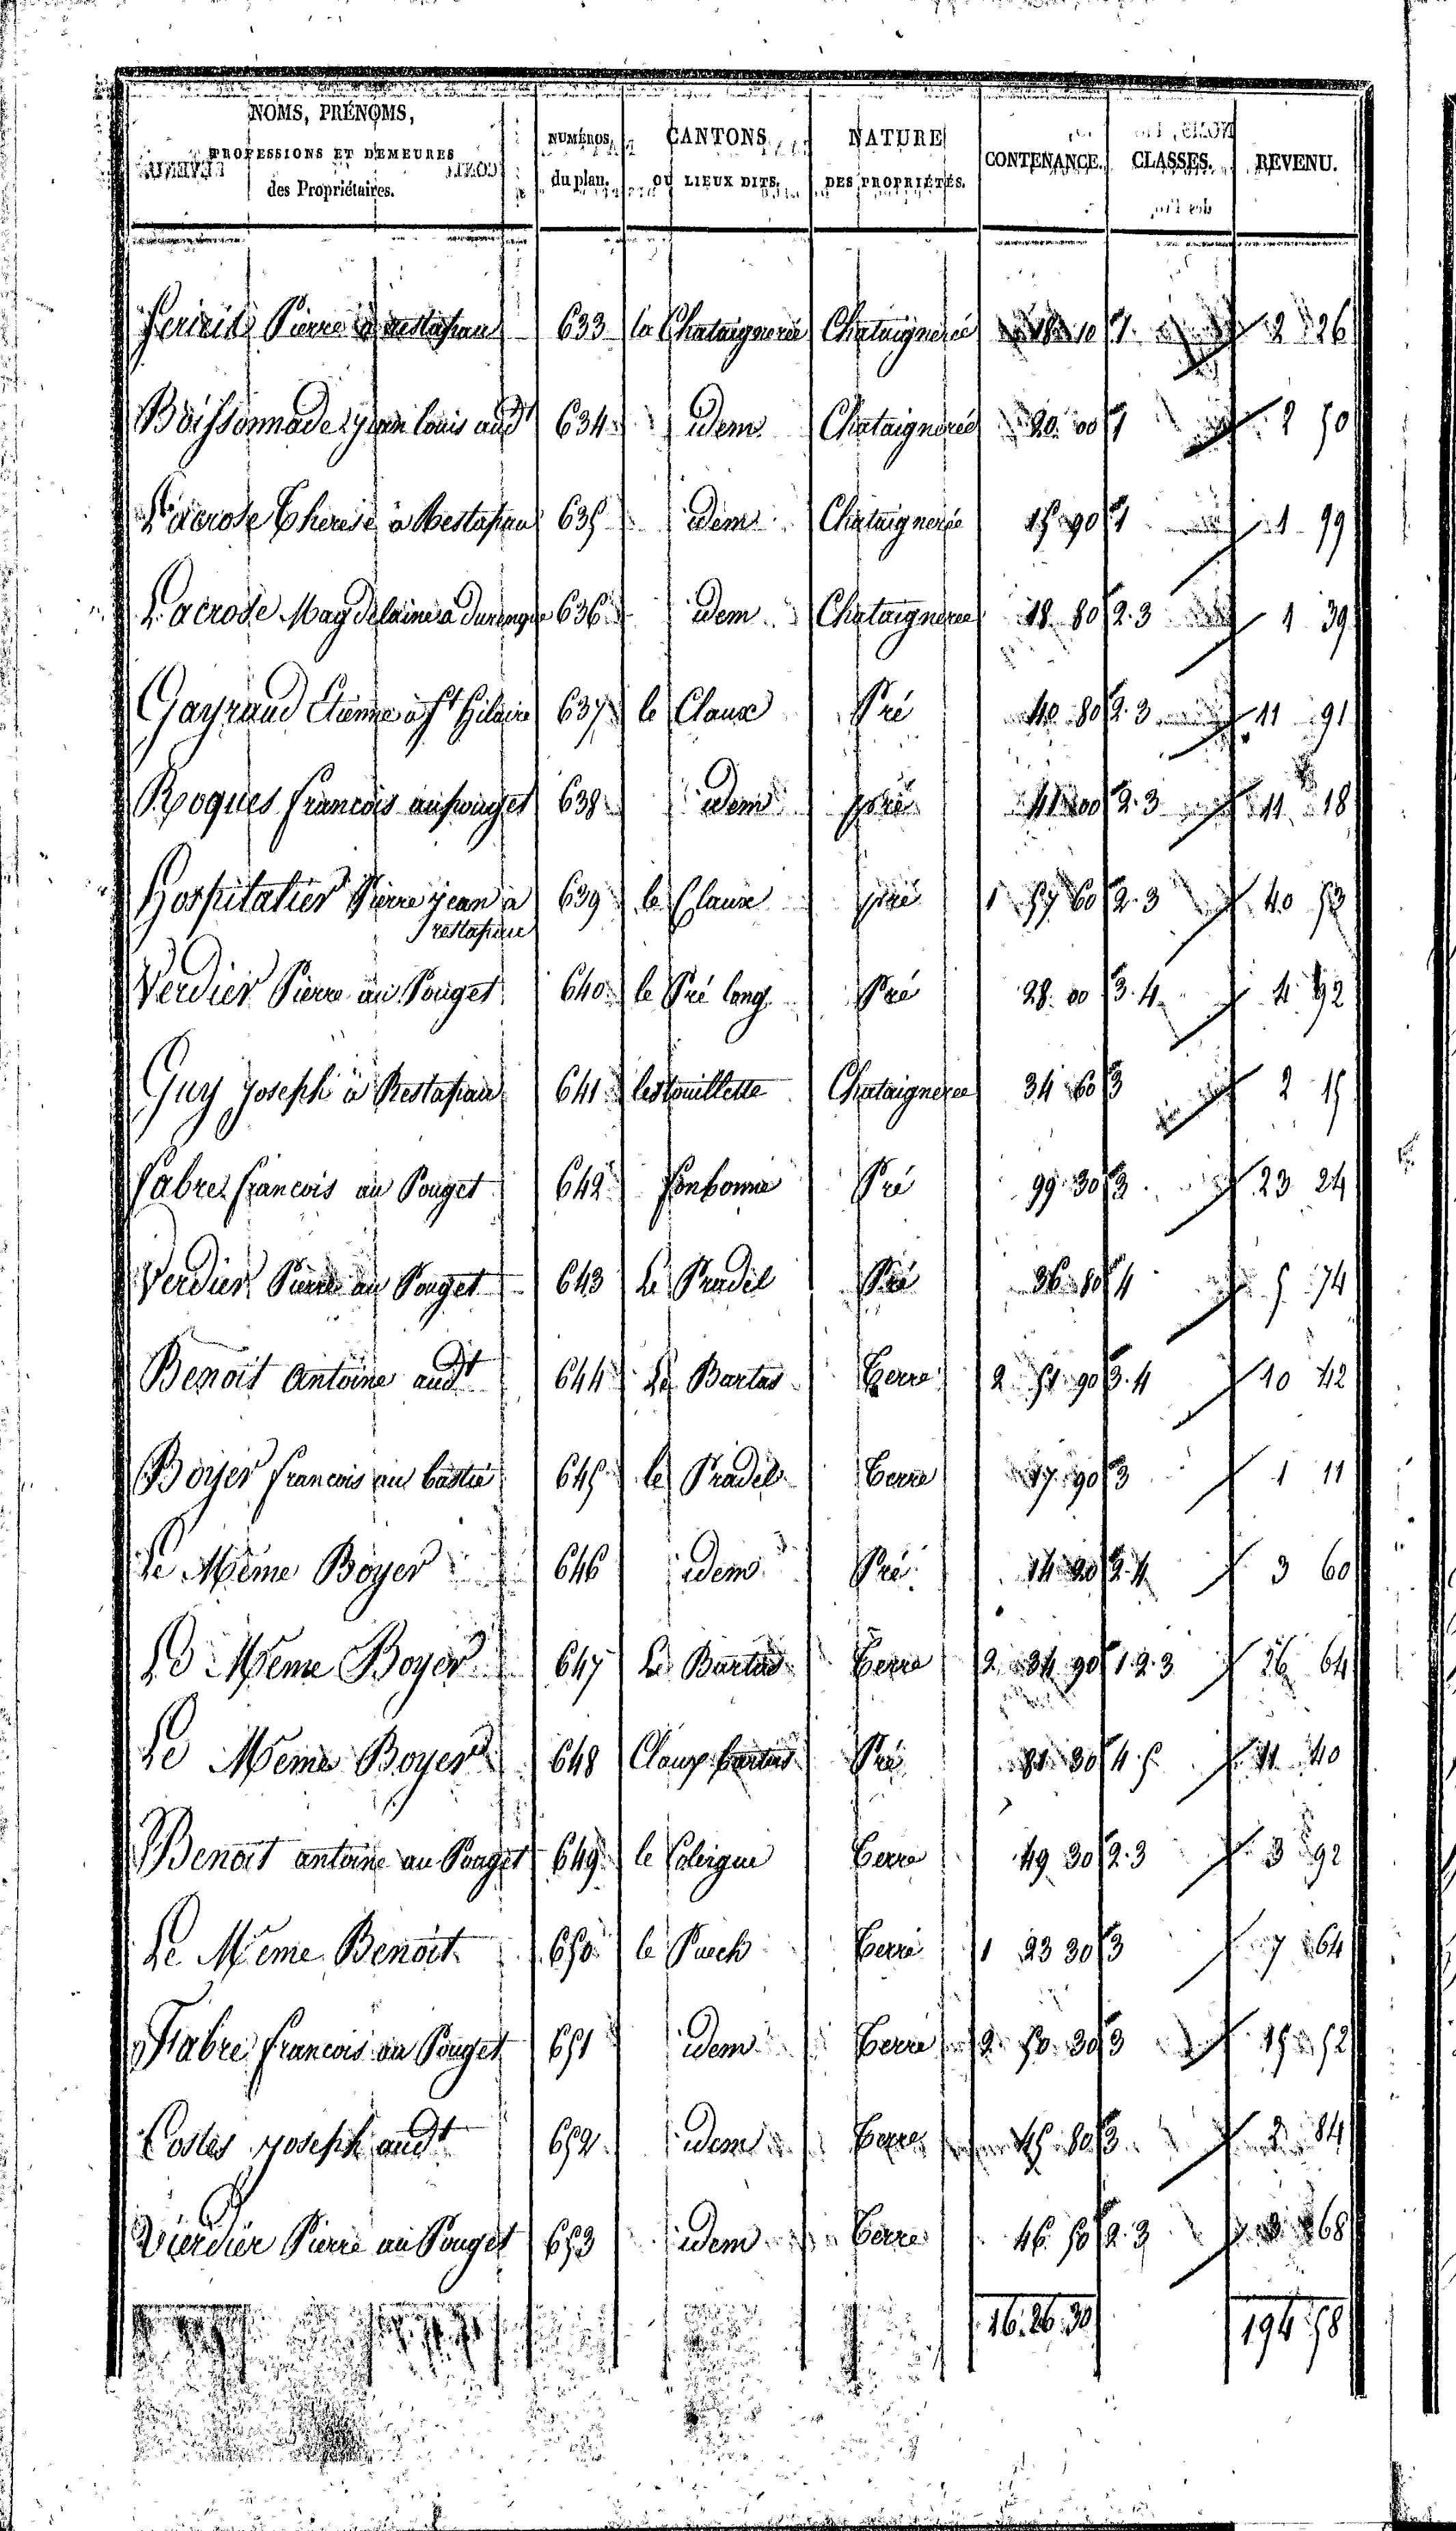 NOMS, PRÉNOMS, PROFESSIONS ET DEMEURES des Propriétaires. NUMÉROS du plan. CANTONS OU LIEUX DITS. NATURE DES PROPRIÉTÉS. CONTENANCE. CLASSES. REVENU.
Pierre à restapau 633 la Chataignerée Chataignerée 18 10 1 2 26
Boissonnade jean louis aud't 634 idem Chataignerée 20 00 1 2 50
Lacrose Therese à Restapau 635 idem Chataignerée 15 90 1 1 99
Lacrose Magdelaine à 636 idem Chataignerée 18 80 2.3 1 39
Gayraud Etienne à St Hilaire 637 le Claux Pré 40 80 2.3 11 91
Roques francois au pouget 638 idem pré 41 00 2.3 11 18
Hospitalier Pierre jean à 639 le Claux pré 1 57 60 2.3 40 53
restapau
Verdier Pierre au Pouget 640 le Pré long Pré 28 00 3.4 4 92
Guy joseph à Restapau 641 Chataigneree 34 60 3 2 15
fabre francois au Pouget 642 fonbonne Pré 99 30 3 23 24
Verdier Pierre au Pouget 643 Le Pradel Pré 36 80 4 5 74
Benoit antoine aud't 644 Le Bartas Terre 2 51 90 3.4 10 42
Boyer francois au bastié 645 le Pradel Terre 17 90 3 1 11
Le Même Boyer 646 idem Pré 14 20 2.4 3 60
Le Même Boyer 647 Le Bartas Terre 2 34 90 1.2.3 26 64
Le Meme Boyer 648 Claux bartas Pré 81 30 4.5 11 40
Benoit antoine au Pouget 649 le Terre 49 30 2.3 3 92
Le Même Benoit 650 le Puech Terre 1 23 30 3 7 64
Fabre francois au Pouget 651 idem Terre 2 50 30 3 15 52
Costes joseph aud't 652 idem Terre 45 80 3 2 84
Vierdier Pierre au Pouget 653 idem Terre 46 50 2.3 3 68
16.26.30 194 58